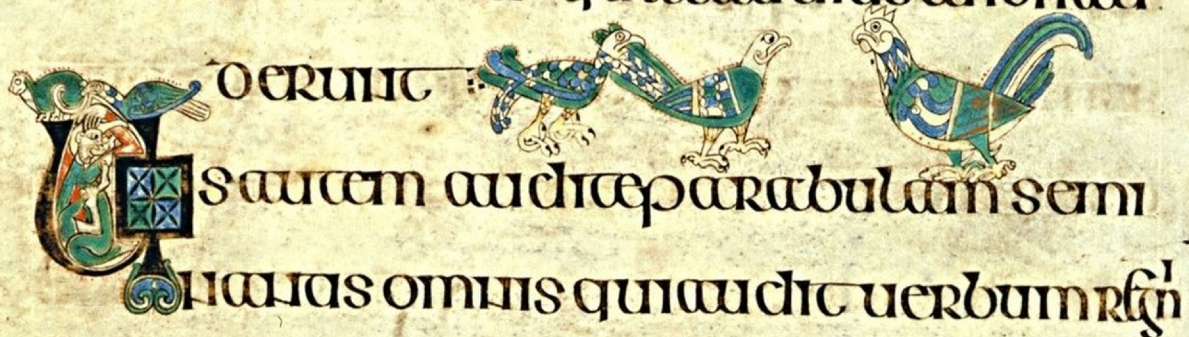 derunt :
Uos autem audite parabulam semi
nantis omnis qui audit uerbum regni